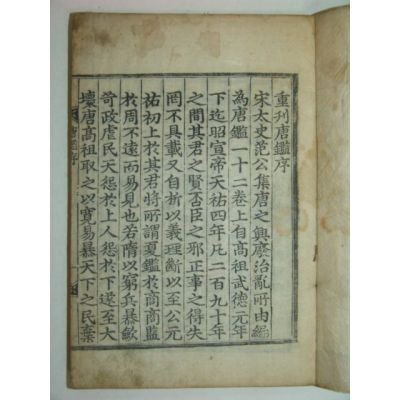 重刊唐鑑序
宋太史范公集唐之興廢治亂所由編
為唐鑑一十二卷上自高祖武德元年
下迄昭宣帝天祐四年凡二百九十年
之間其君之賢否臣之邪正事之得失
罔不具載又自析以義理斷以至公元
祐初上於其君將所謂夏鑑於商商鑑
於周不遠而易見也若隋以窮兵暴斂
苛政虐民天怨於上人怨於下遂至大
壞唐高祖取之以寬易暴天下之民棄